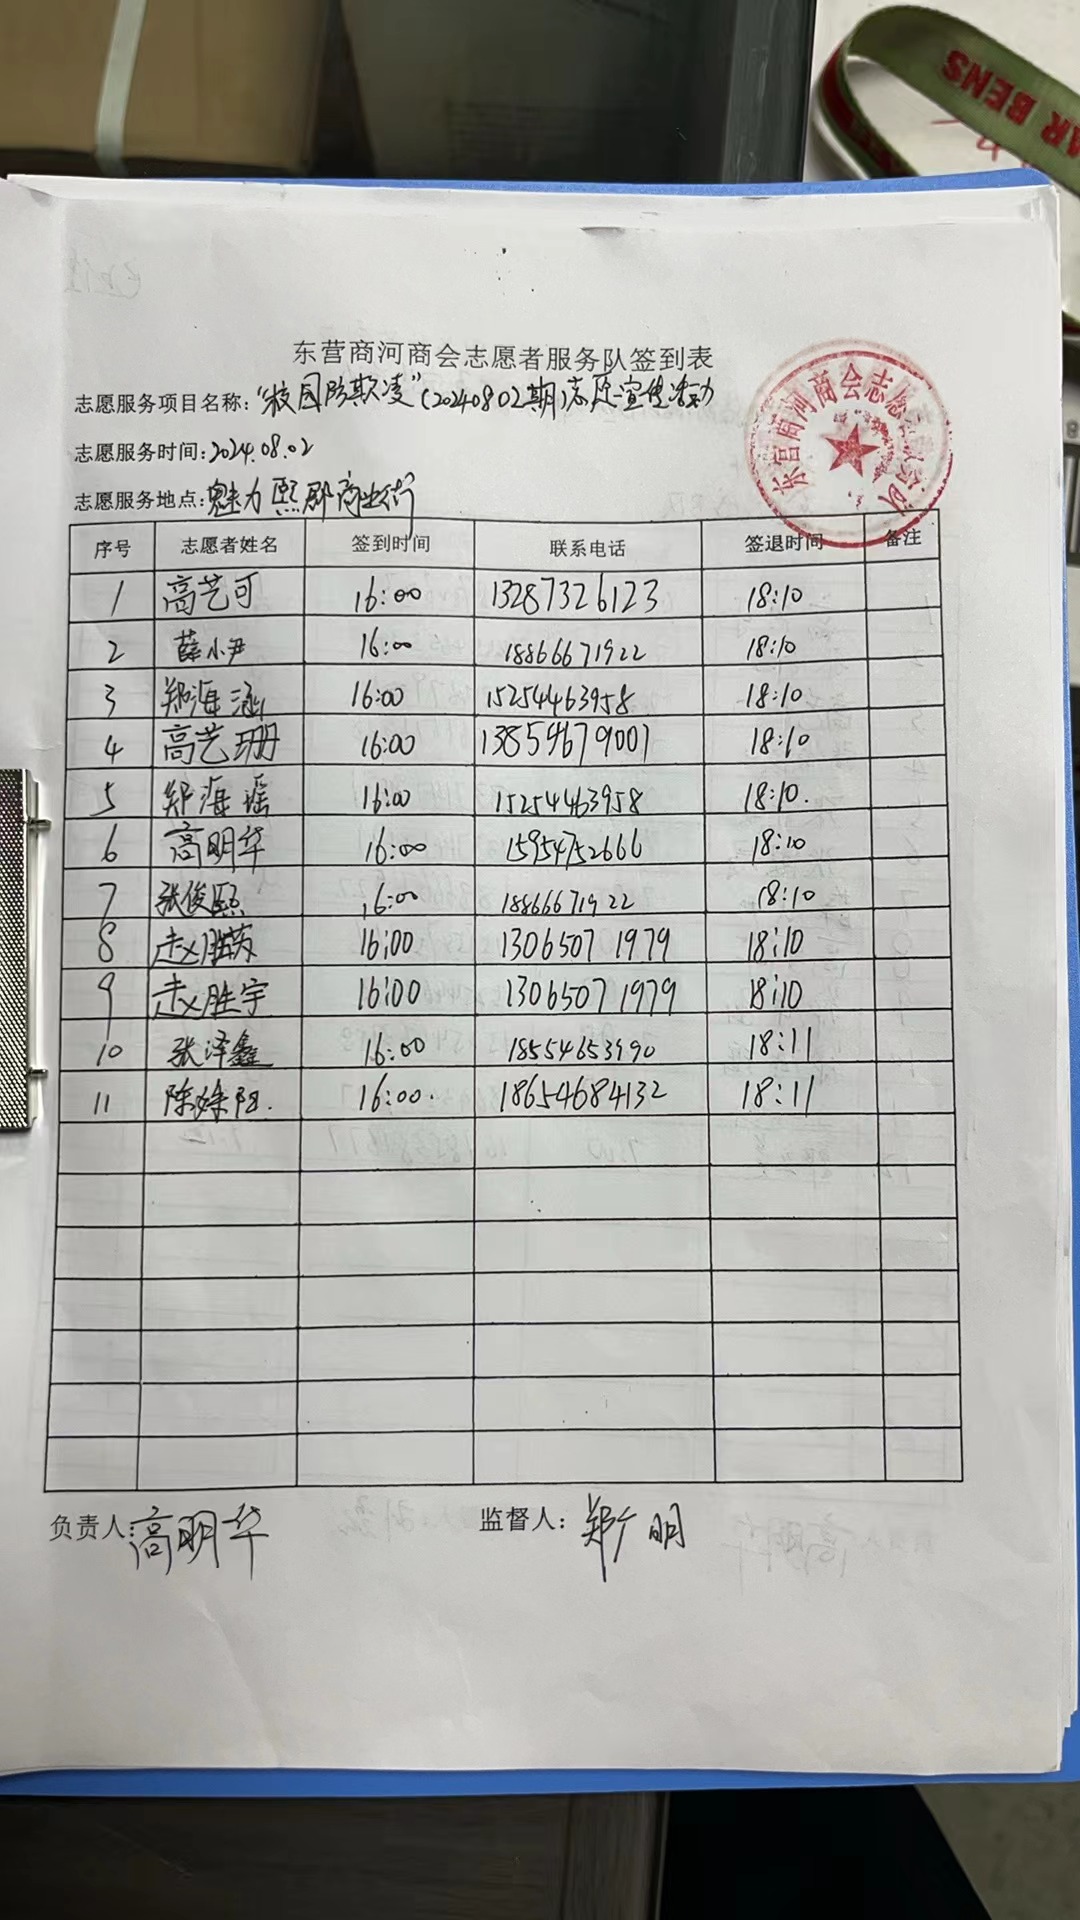 AR BENS
东营商河商会志愿者服务队签到表
志愿服务项目名称:“校园防欺凌”(20240802期)志愿宣传活动
志愿服务时间:2024.08.02
志愿服务地点:魅力熙郡商业街
东营商河商会志愿者服务队
序号 志愿者姓名 签到时间 联系电话 签退时间 备注
1 高艺可 16:00 13287326123 18:10
2 薛小尹 16:00 18866671922 18:10
3 郑海涵 16:00 15254463958 18:10
4 高艺珊 16:00 13854679007 18:10
5 郑海谣 16:00 15254463958 18:10.
6 高明华 16:00 15954752666 18:10
7 张俊熙 16:00 18866671922 18:10
8 赵胜英 16:00 13065071979 18:10
9 赵胜宇 16:00 13065071979 18:10
10 张泽鑫 16:00 18554653990 18:11
11 陈姝 16:00. 18654684132 18:11
负责人:高明华 监督人:郑广明